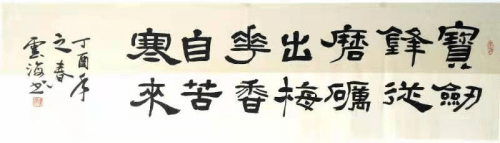 寶劍
鋒從
磨礪
出梅
華香
自苦
寒來
丁酉年
之春
雲海书